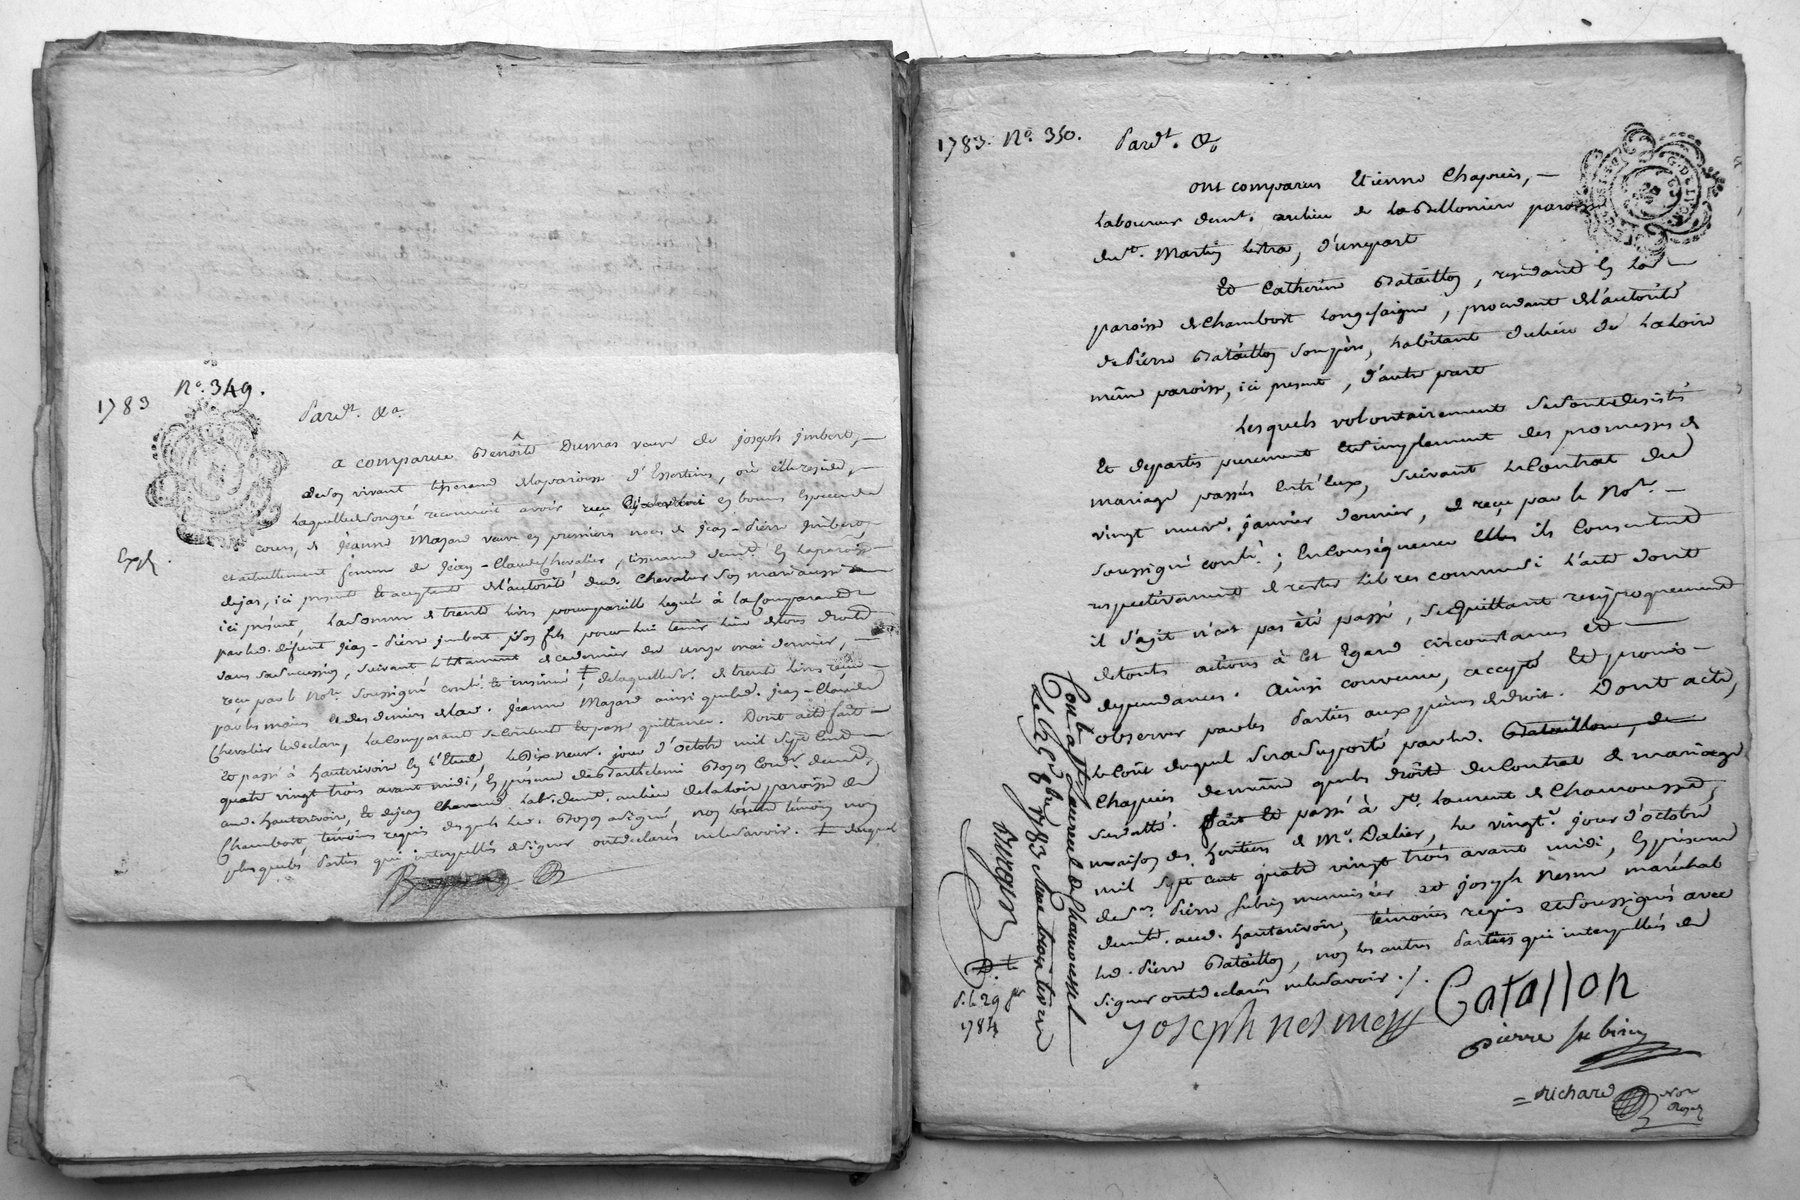 1783 N°. 349.
Pardt. &a.
a comparue Benoîte Dumas veuve de joseph jmbert,
de son vivant tisserand de la paroisse d'Essertines, où elle reside,
laquelle de son gré reconnoit avoir reçu en bonnes especes de
cours, de jeanne Mazard veuve en premieres noces de jean-pierre jmbert,
Exp.
et actuellement femme de jean-Claude Chevalier, tisserand demt. en la paroisse
dejas, ici presente et acceptante de l'autorité dud. Chevalier son mari aussi
ici présent, la somme de trente livres pour pareille leguée à la Comparante
par led. défunt jean-pierre jmbert son fils pour lui tenir lieu de tous droits
dans sa succession, suivant le testament de ce dernier du onze mai dernier,
reçu par le Nore. soussigné contlé. et insinué; de laquelle s. de trente livres reçue
par les mains et des deniers de lad. jeanne Mazard ainsi que led. jean-Claude
Chevalier le declare, la Comparante se contente et passe quittance. Dont acte fait
et passé à hauterivoire en l'Etude, le dix neuf. jour d'octobre mil sept cent
quatre vingt trois avant midi, en présence de Barthelemi Bozon Cordr. demt.
aud. hauterivoire, et de jean Chavand lab. demt. au lieu de la loire paroisse de
Chambost, témoins requis desquels led. Bozon a signé, non led. témoin non
plus que les parties qui interpellés de signer ont declarés ne le savoir.
1783. N°. 350.
Pardt. &a
ont comparus Etienne Chapuis,
laboureur demt. au lieu de la Billonniere paroisse
de St. Martin lestra, d'une part
Et Catherine Bataillon, residante en la
paroisse de Chambost longesaigne, procedante de l'autorité
de Pierre Bataillon son père, habitant du lieu de la loire
même paroisse, ici present, d'autre part
Lesquels volontairement se sont desistés
Et departis purement et simplement des promesses de
mariage passées entr'eux, suivant le Contrat du
vingt neuve. janvier dernier, reçu par le Nore.
soussigné contlé.; En Conséquence Elles ils Consentent
respectivement de rester libres comme si l'acte dont
il s'agit n'eut pas été passé, se quittant reciproquement
de touts actions à cet égard circonstances et
dependances. Ainsi convenu, accepté et promis
observer par les Parties aux peines de droit. Dont acte,
le Coût duquel sera suporté par led. Bataillon, de
Chapuis de même que les droits du Contrat de mariage
susdatté. fait et passé à St. Laurent de Chamousset,
maison des heritiers de Mr. Dalier, le vingte. jour d'octobre
mil sept cent quatre vingt trois avant midi, En présence
de Sr. Pierre Subrin menuisier et joseph Nesme maréchal
demts. aud. hauterivoire, témoins requis et soussignés avec
led. Pierre Bataillon, non les autres Parties qui interpellés de
signer ont declarés ne le savoir./.
joseph nesme Batallon
pierre subrin
Richard Nore Royal
Contlé. a St. Laurent de Chamousset
le 25e 8bre 1783
D.
P. le 29
1784